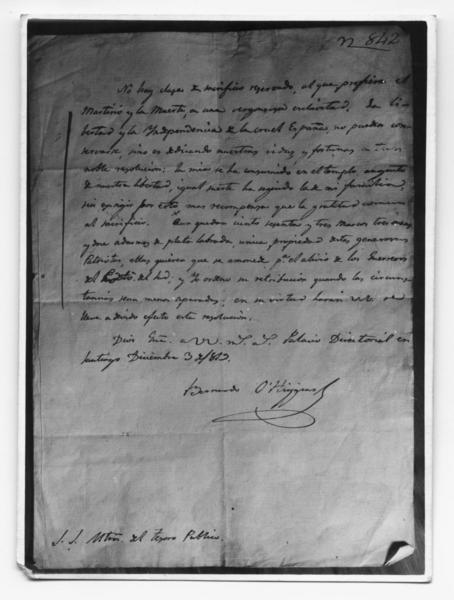 n. 842
No hay clase de sacrificio reservado, al que prefiera el
Martirio y la Muerte, a una vergonzosa esclavitud. La Li-
bertad y la Independencia de la cruel España, no pueden con-
servarse, sino es dedicando nuestras vidas y fortunas a tan
noble resolucion: la mia se ha consumido en el templo augusto
de nuestra libertad, igual suerte ha seguido la de mi familia,
sin exigir por esto mas recompensa que la gratitud comun
al sacrificio. Aun quedan ciento sesenta y tres marcos tres onzas
y doce adarmes de plata labrada, unica propiedad de tan generosos
Patriotas, ellos quieren que se amonede pa. el alivio de los Guerreros
del del Sud. y Yo ordeno su retribucion quando las circuns-
tancias sean menos apuradas; en su virtud haran VV. se
lleve a devido efecto esta resolucion.
Dios Gue. a VV. m.s a.s Palacio Directorial en
Santiago Diciembre 3 de 819.
Bernardo O'Higgins
S. S. Mtros. del tesoro Publico.